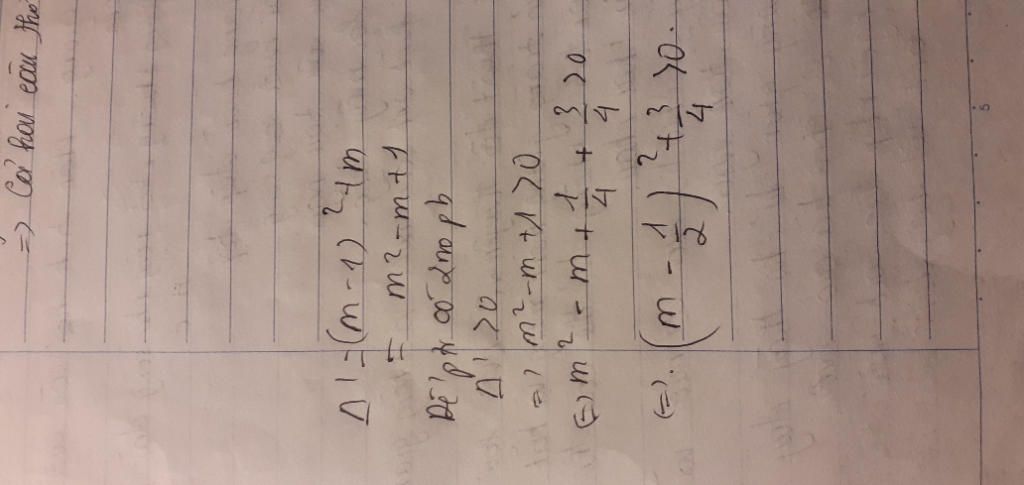 => Cả hai câu thỏ
Δ' = (m - 1)² + m
= m² - m + 1
Để ptr có 2no pb
Δ' > 0
=> m² - m + 1 > 0
(=) m² - m + 1/4 + 3/4 > 0
(=). (m - 1/2)² + 3/4 > 0.
5